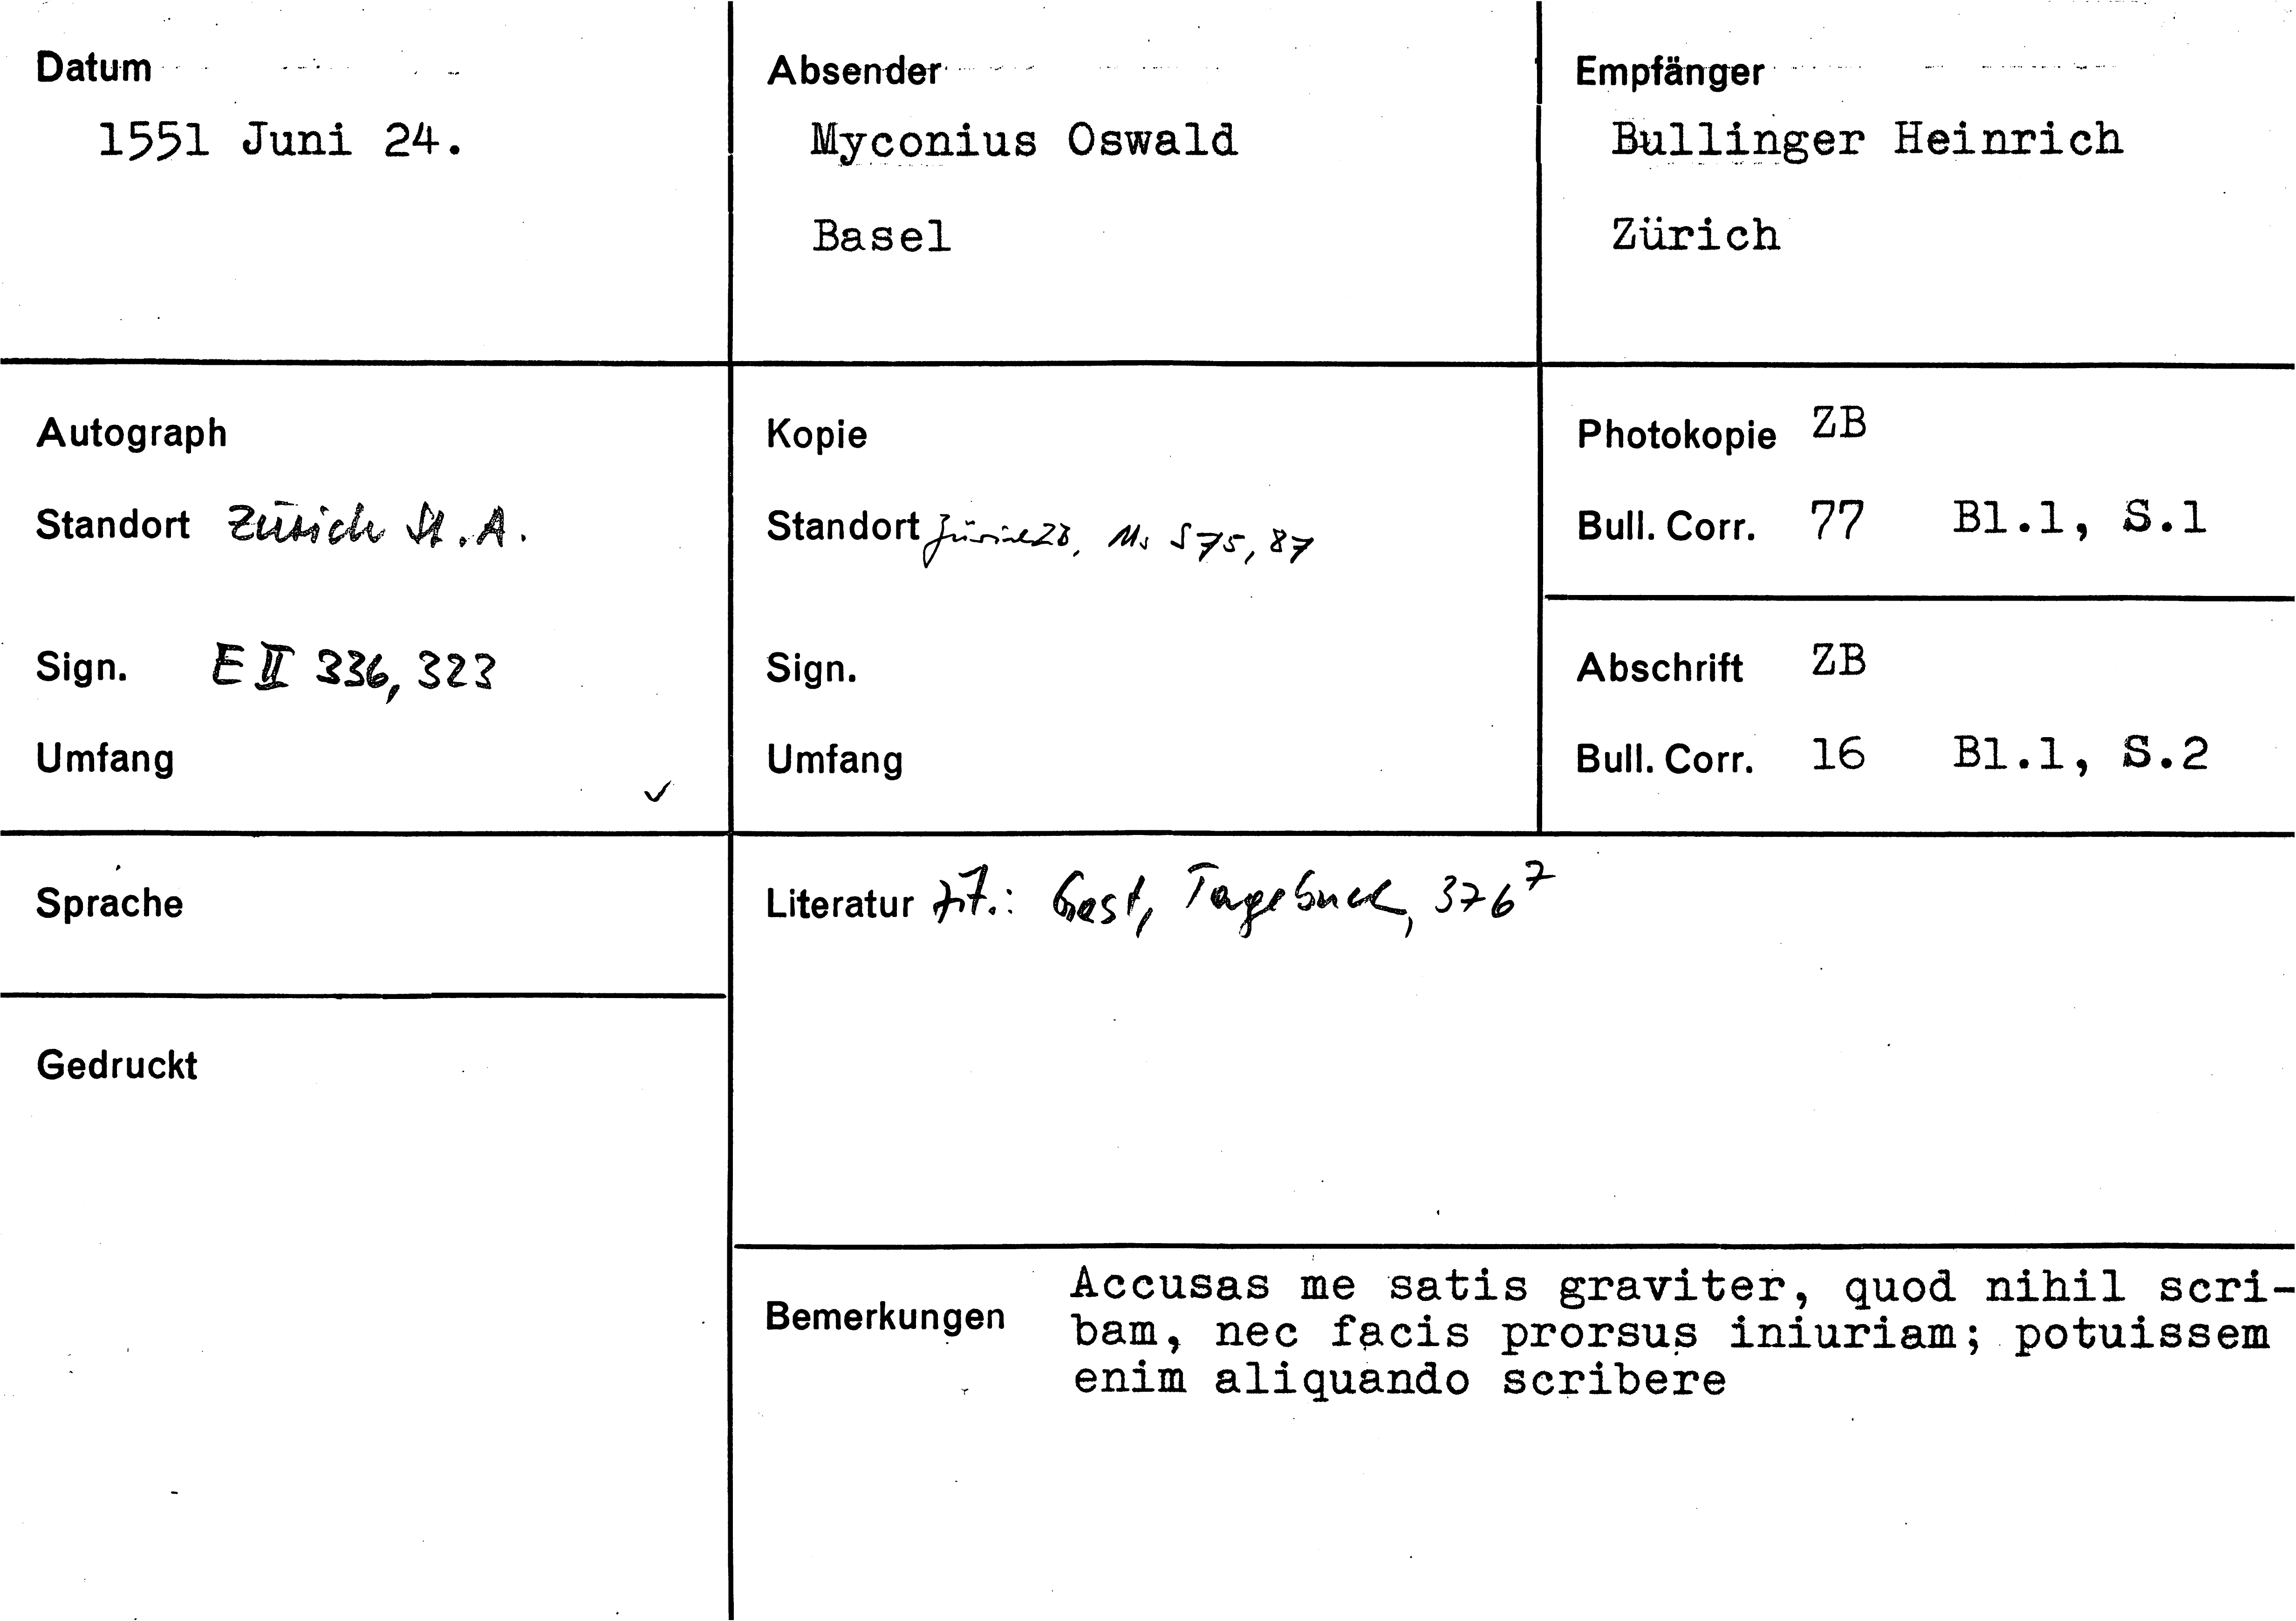 Datum
1551 Juni 24.
Absender
Myconius Oswald
Basel
Empfänger
Bullinger Heinrich
Zürich
Autograph
Standort Zürich St.A.
Sign. E II 336, 323
Umfang
✓
Kopie
Standort Zürich ZB, Ms S 75, 87
Sign.
Umfang
Photokopie ZB
Bull. Corr. 77 Bl.1, S.1
Abschrift ZB
Bull. Corr. 16 Bl.1, S.2
Sprache
Gedruckt
Literatur zit.: Gast, Tagebuch, 376⁷
Bemerkungen
Accusas me satis graviter, quod nihil scri-
bam, nec facis prorsus iniuriam; potuissem
enim aliquando scribere